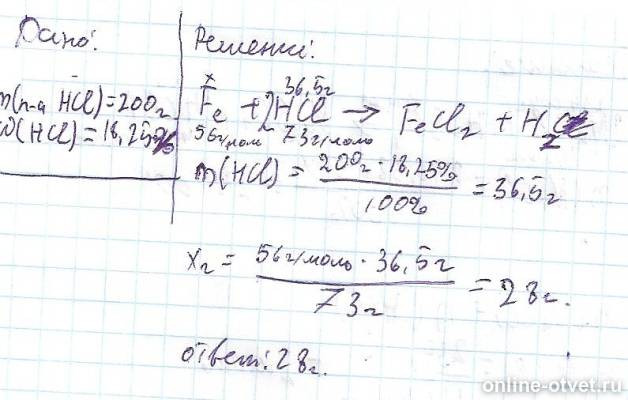 Дано:
m(р-а HCl)=200г
ω(HCl)=18,25%
Решение:
x 36,5г
Fe + 2HCl → FeCl2 + H2
56г/моль 73г/моль
m(HCl) = 200г · 18,25% / 100% = 36,5г
x г = 56г/моль · 36,5г / 73г = 28г.
ответ: 28г.
online-otvet.ru